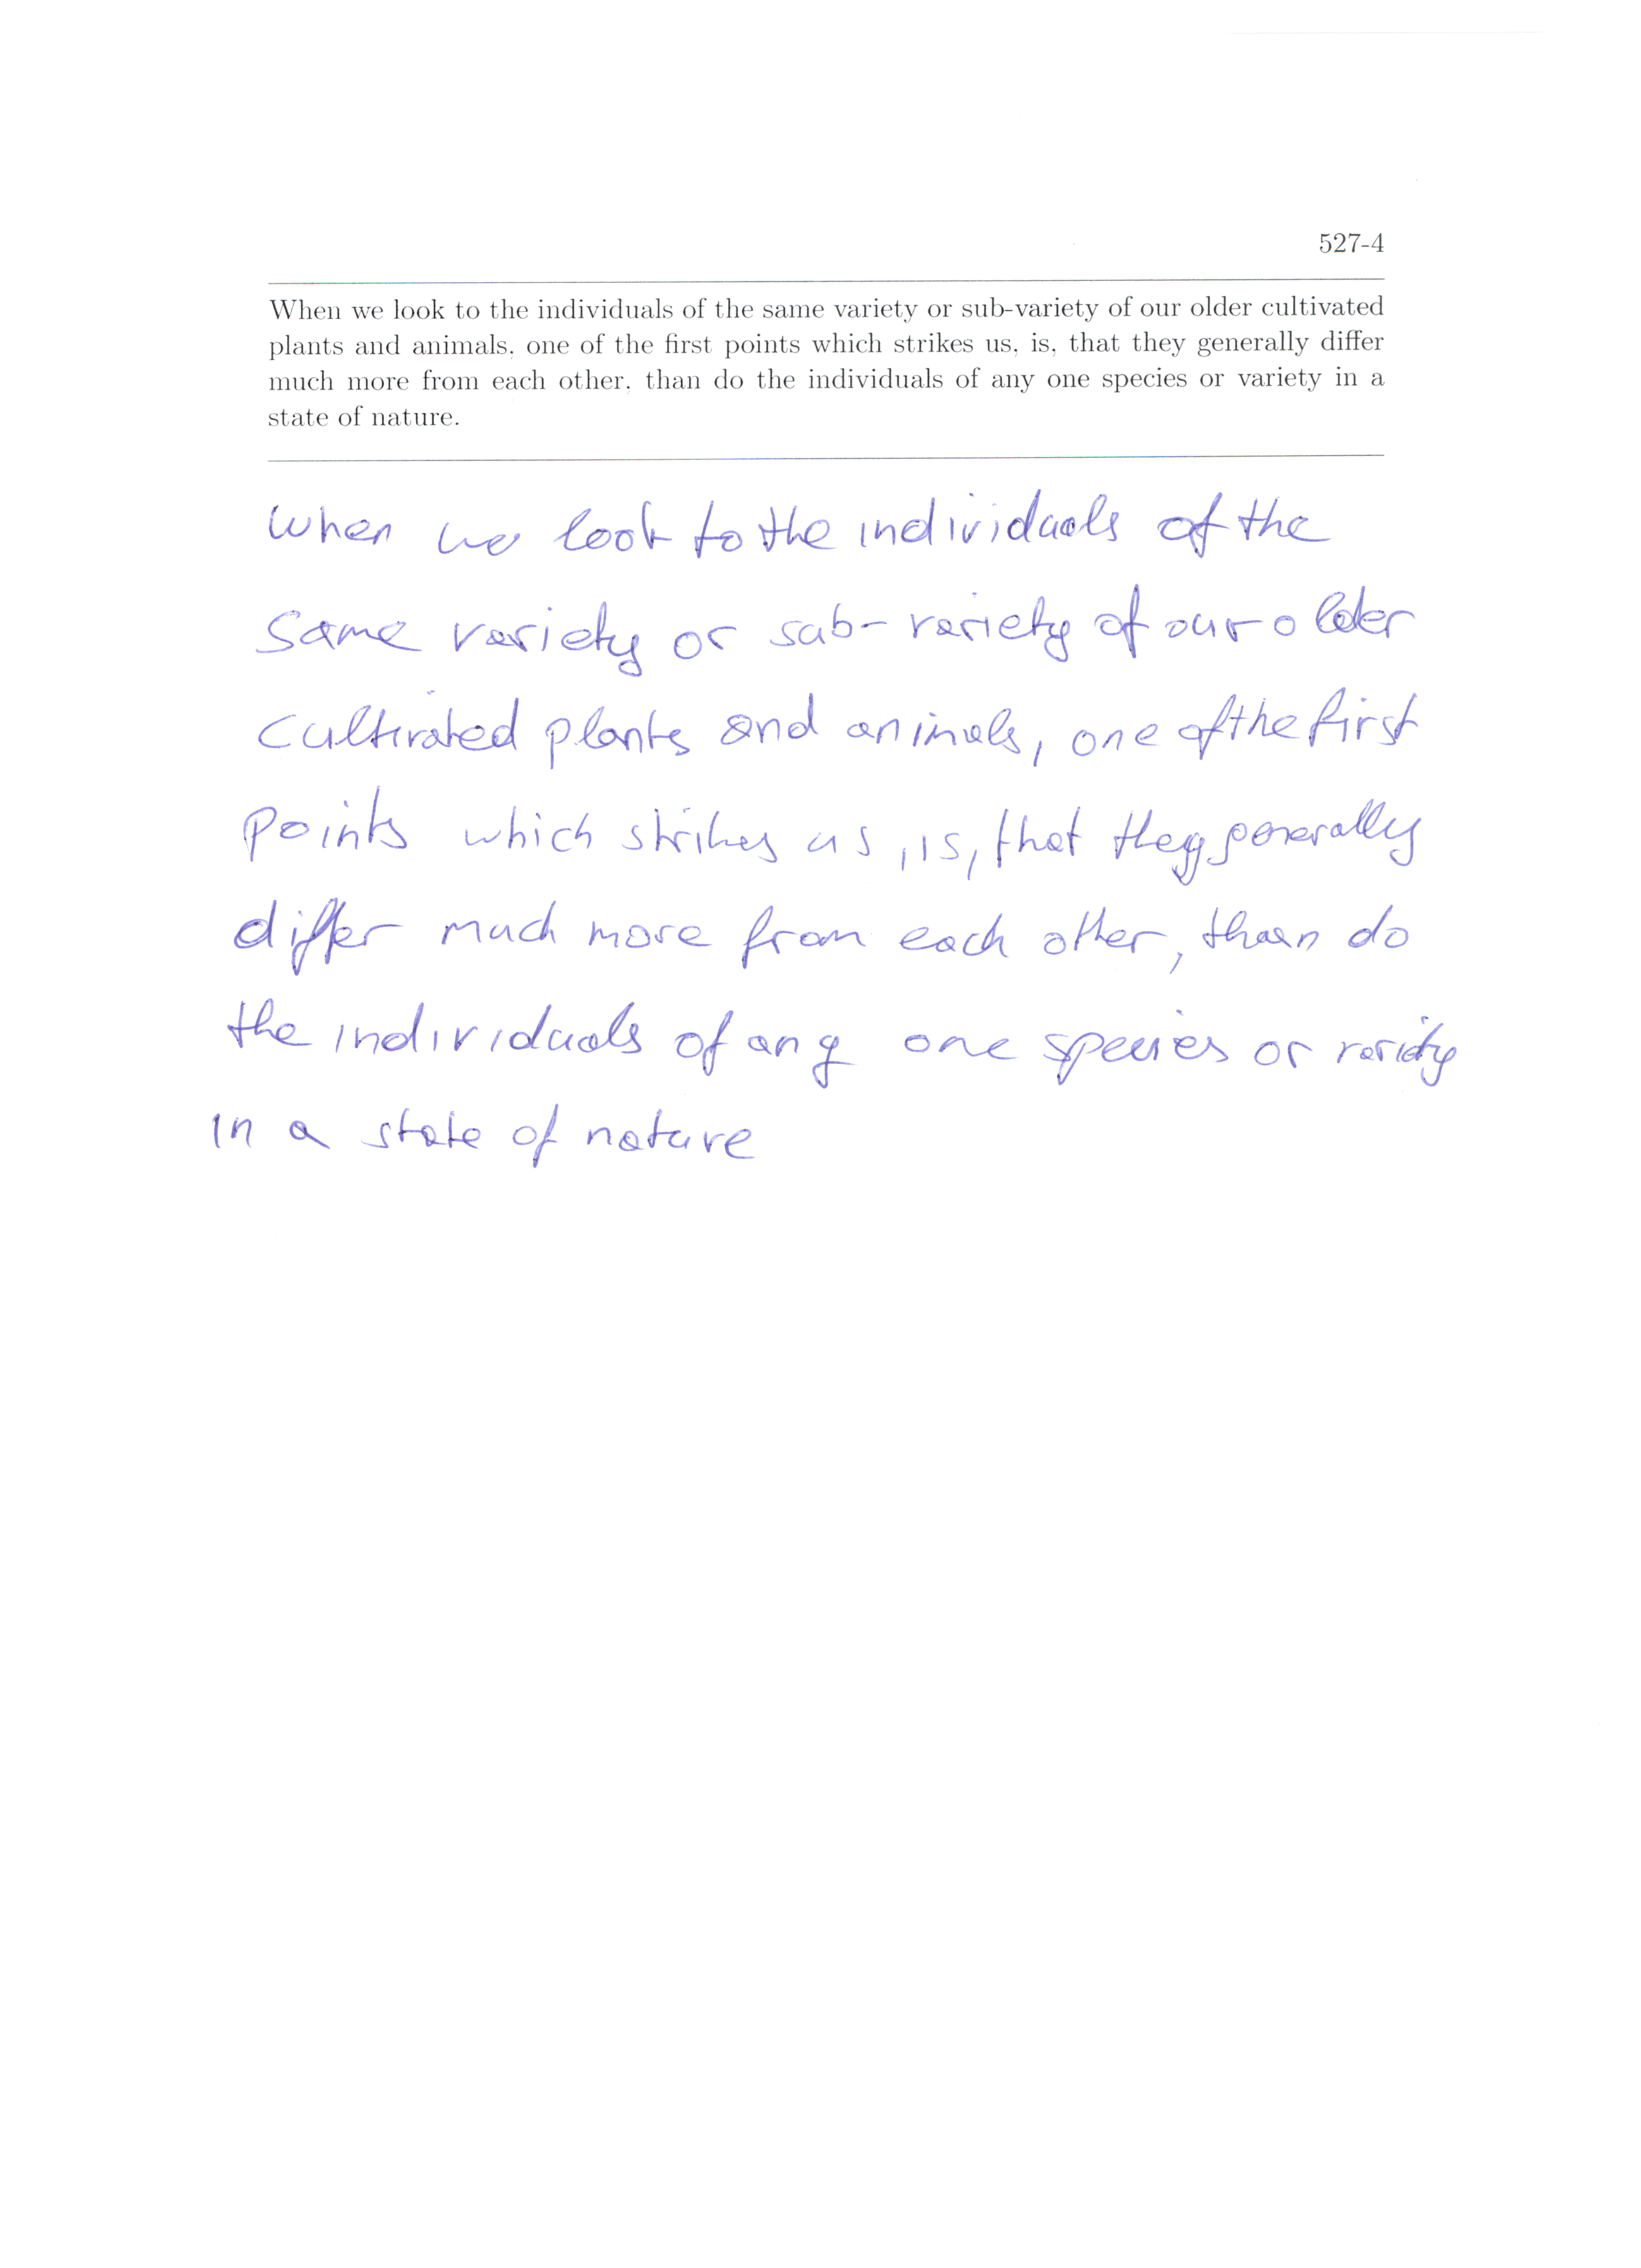 527-4
When we look to the individuals of the same variety or sub-variety of our older cultivated
plants and animals, one of the first points which strikes us, is, that they generally differ
much more from each other, than do the individuals of any one species or variety in a
state of nature.
When we look to the individuals of the
same variety or sub-variety of our older
cultivated plants and animals, one of the first
points which strikes us, is, that they generally
differ much more from each other, than do
the individuals of any one species or variety
in a state of nature